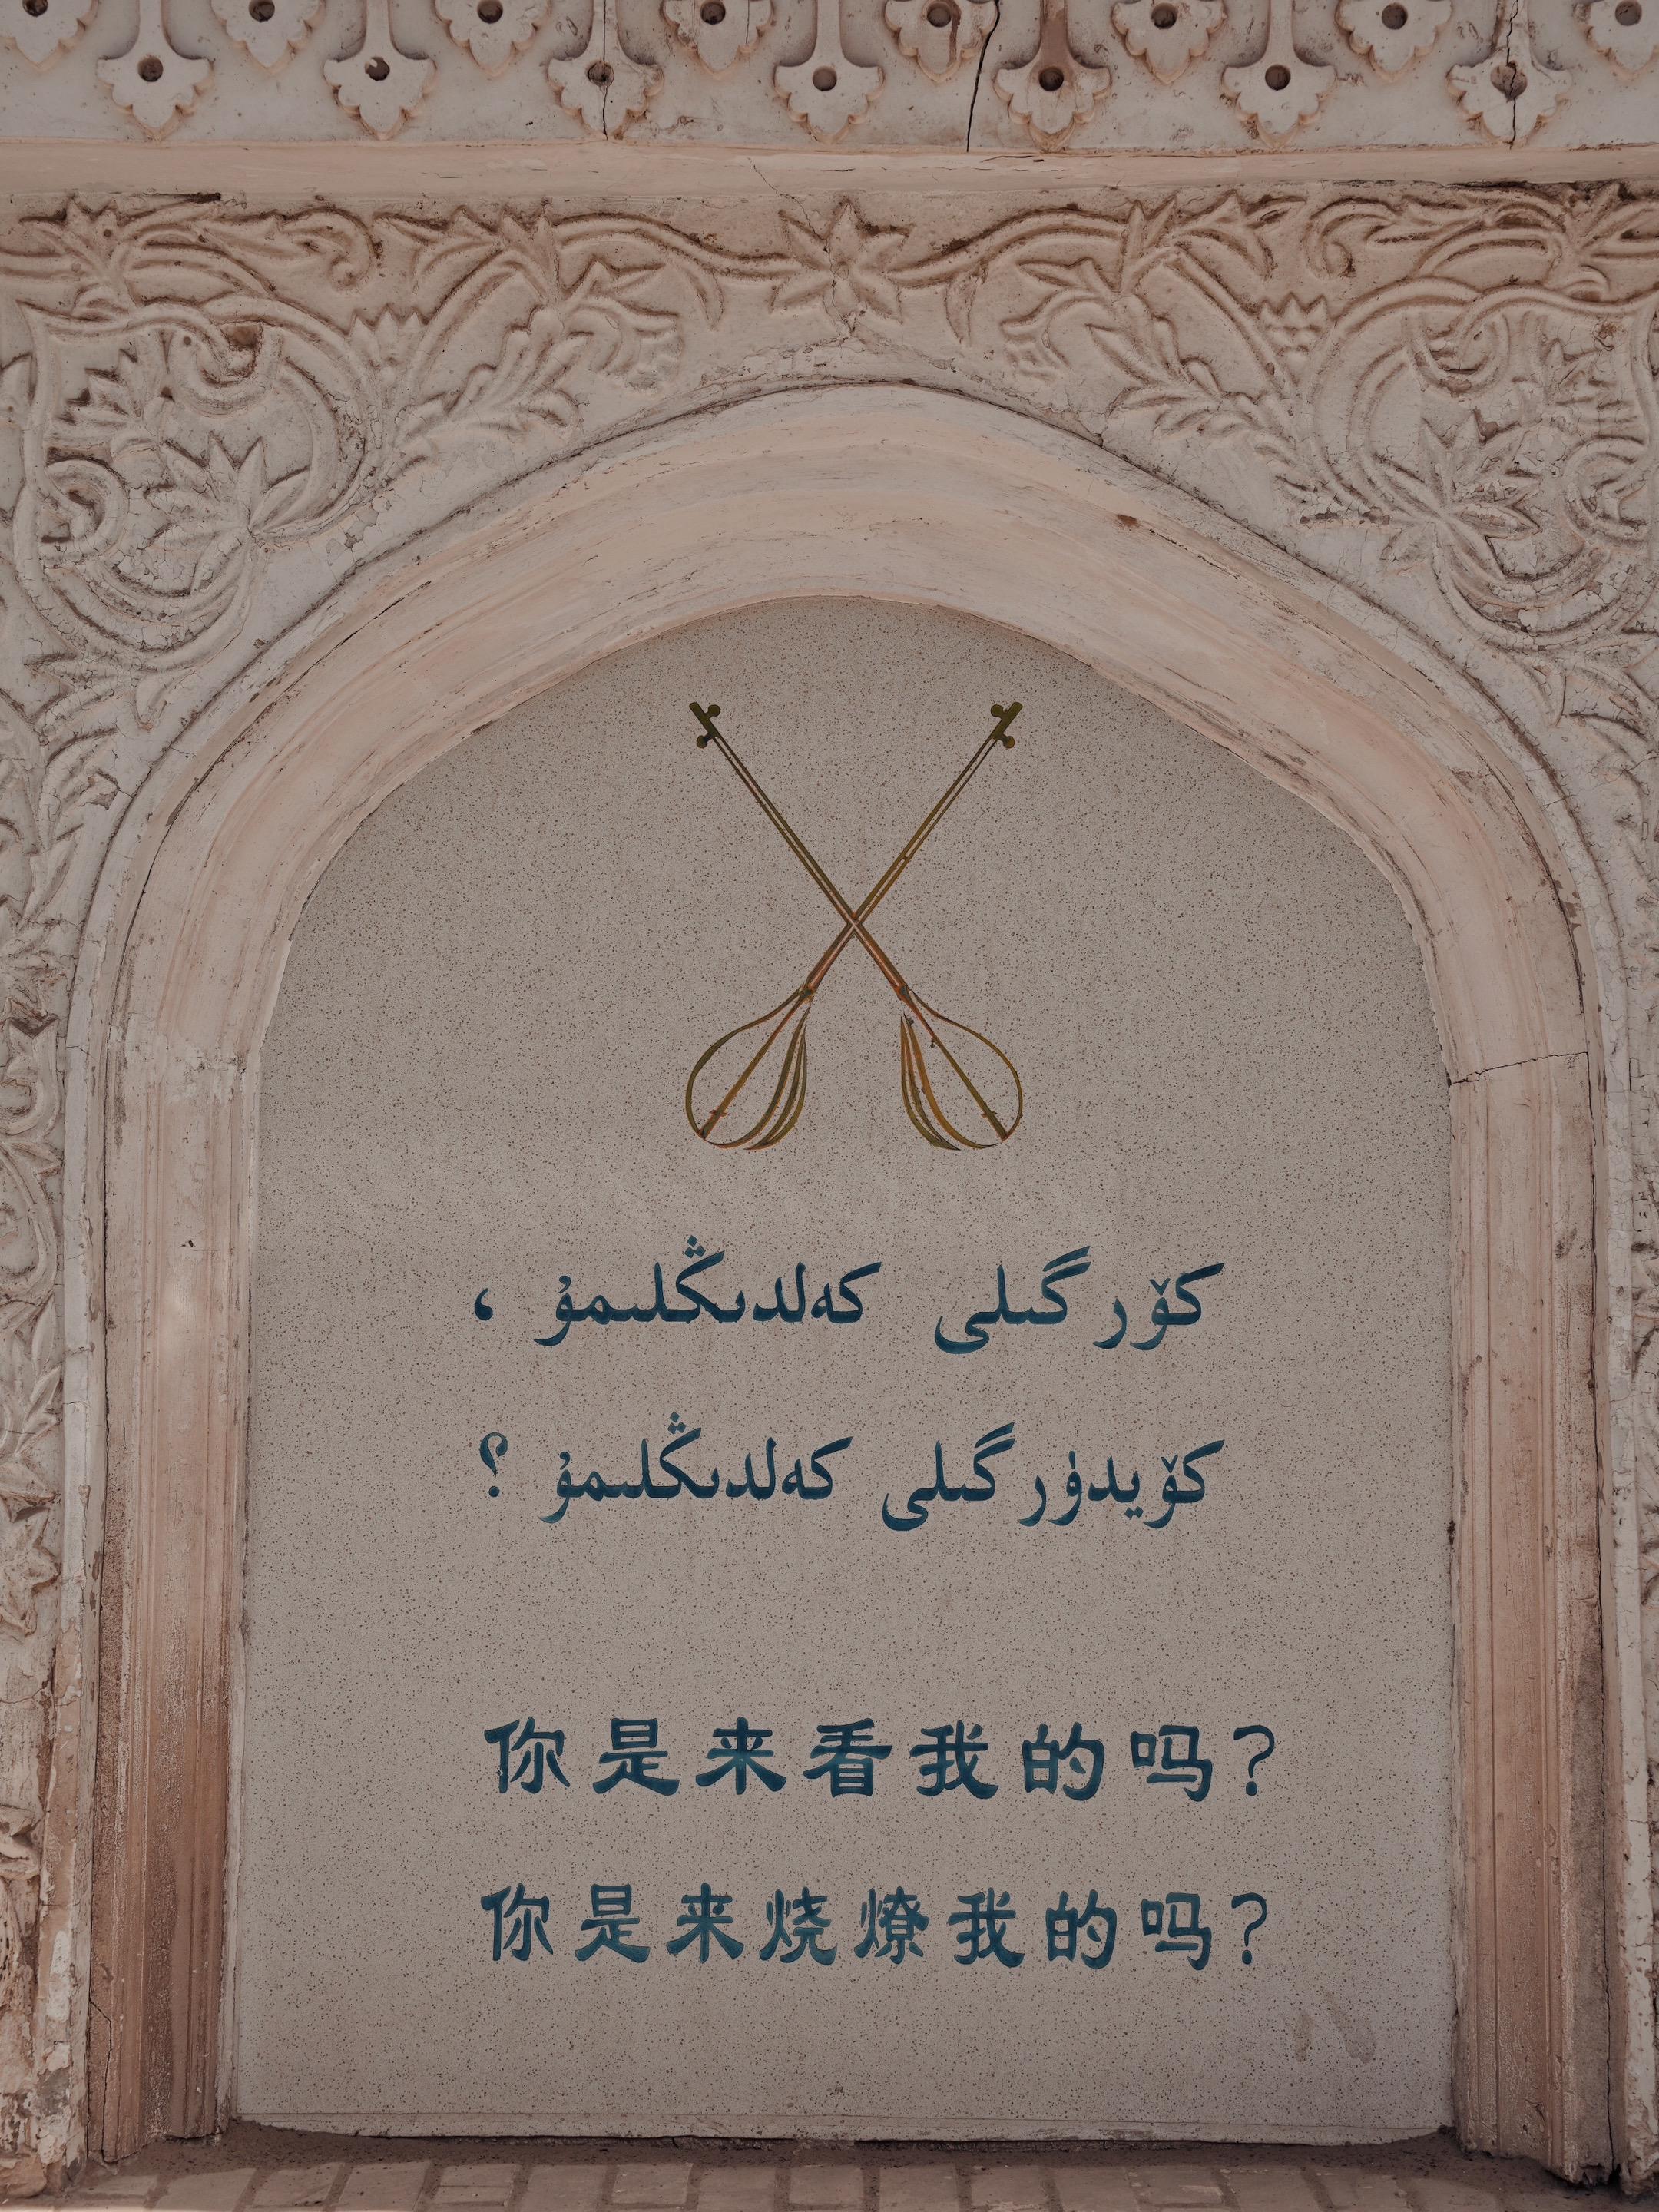 كۆرگىلى كەلدىڭلىمۇ ،
كۆيدۈرگىلى كەلدىڭلىمۇ ؟
你是来看我的吗?
你是来烧燎我的吗?